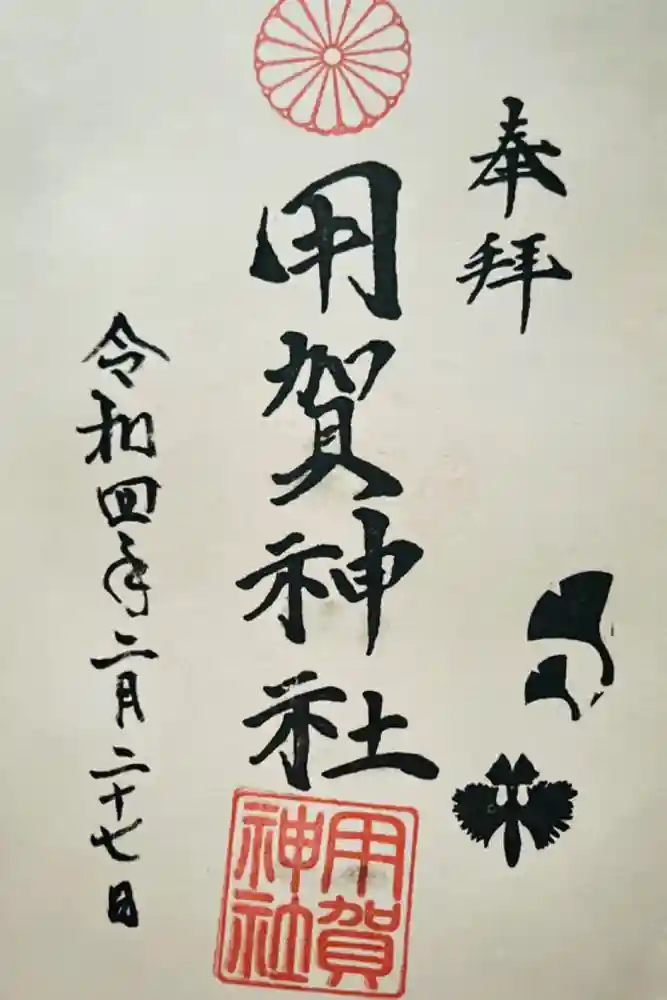 奉拝
用賀神社
令和四年二月二十七日
用賀
神社